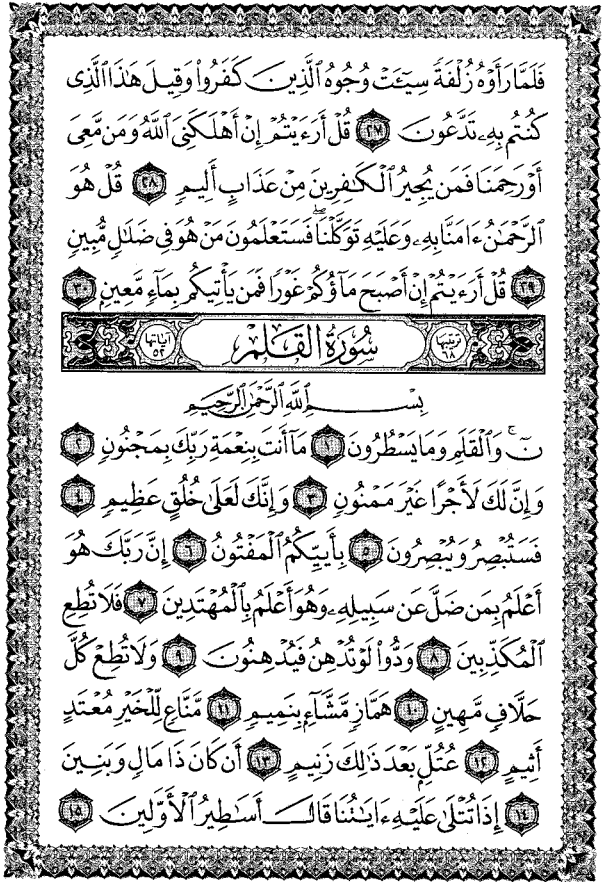 فَلَمَّا رَأَوْهُ زُلْفَةً سِيٓـَٔتْ وُجُوهُ ٱلَّذِينَ كَفَرُوا۟ وَقِيلَ هَٰذَا ٱلَّذِى
كُنتُم بِهِۦ تَدَّعُونَ ٢٧ قُلْ أَرَءَيْتُمْ إِنْ أَهْلَكَنِىَ ٱللَّهُ وَمَن مَّعِىَ
أَوْ رَحِمَنَا فَمَن يُجِيرُ ٱلْكَٰفِرِينَ مِنْ عَذَابٍ أَلِيمٍ ٢٨ قُلْ هُوَ
ٱلرَّحْمَٰنُ ءَامَنَّا بِهِۦ وَعَلَيْهِ تَوَكَّلْنَا ۖ فَسَتَعْلَمُونَ مَنْ هُوَ فِى ضَلَٰلٍ مُّبِينٍ
٢٩ قُلْ أَرَءَيْتُمْ إِنْ أَصْبَحَ مَآؤُكُمْ غَوْرًا فَمَن يَأْتِيكُم بِمَآءٍ مَّعِينٍ ٣٠
ترتيبها ٦٨ سُورَةُ ٱلْقَلَمِ آياتها ٥٢
بِسْمِ ٱللَّهِ ٱلرَّحْمَٰنِ ٱلرَّحِيمِ
نٓ ۚ وَٱلْقَلَمِ وَمَا يَسْطُرُونَ ١ مَآ أَنتَ بِنِعْمَةِ رَبِّكَ بِمَجْنُونٍ ٢
وَإِنَّ لَكَ لَأَجْرًا غَيْرَ مَمْنُونٍ ٣ وَإِنَّكَ لَعَلَىٰ خُلُقٍ عَظِيمٍ ٤
فَسَتُبْصِرُ وَيُبْصِرُونَ ٥ بِأَييِّكُمُ ٱلْمَفْتُونُ ٦ إِنَّ رَبَّكَ هُوَ
أَعْلَمُ بِمَن ضَلَّ عَن سَبِيلِهِۦ وَهُوَ أَعْلَمُ بِٱلْمُهْتَدِينَ ٧ فَلَا تُطِعِ
ٱلْمُكَذِّبِينَ ٨ وَدُّوا۟ لَوْ تُدْهِنُ فَيُدْهِنُونَ ٩ وَلَا تُطِعْ كُلَّ
حَلَّافٍ مَّهِينٍ ١٠ هَمَّازٍ مَّشَّآءٍۭ بِنَمِيمٍ ١١ مَّنَّاعٍ لِّلْخَيْرِ مُعْتَدٍ
أَثِيمٍ ١٢ عُتُلٍّۭ بَعْدَ ذَٰلِكَ زَنِيمٍ ١٣ أَن كَانَ ذَا مَالٍ وَبَنِينَ
١٤ إِذَا تُتْلَىٰ عَلَيْهِ ءَايَٰتُنَا قَالَ أَسَٰطِيرُ ٱلْأَوَّلِينَ ١٥